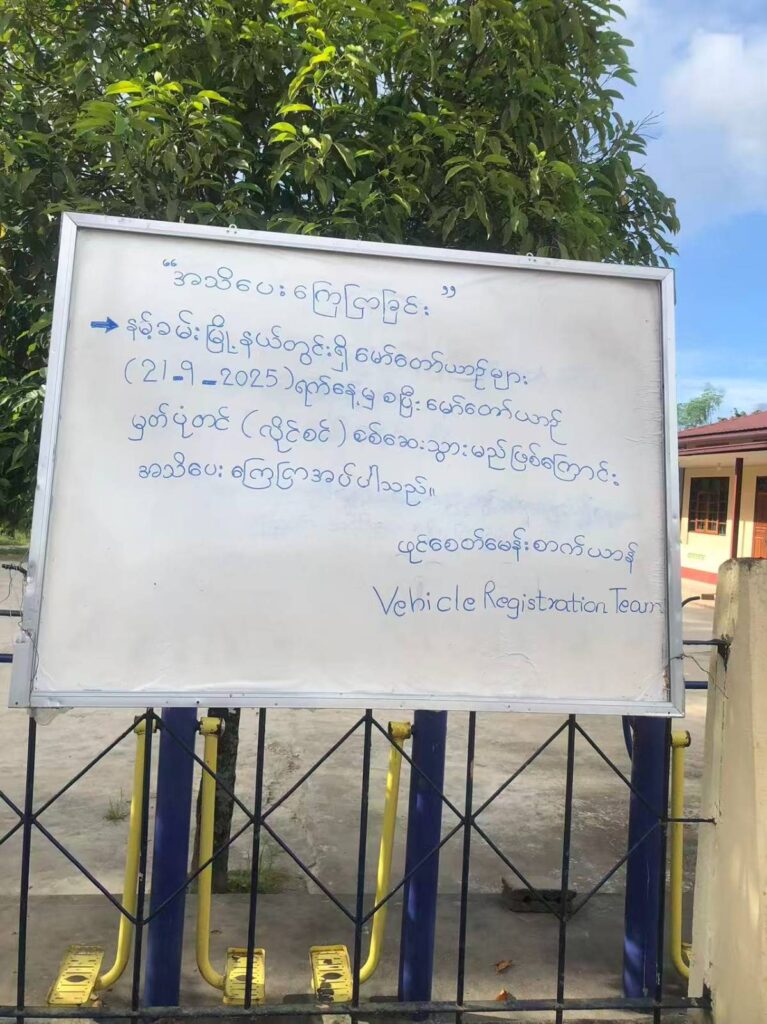 “အသိပေးကြေငြာခြင်း”
→ နမ့်ခမ်းမြို့နယ်တွင်းရှိ မော်တော်ယာဉ်များ
(21-9-2025) ရက်နေ့မှ စပြီး မော်တော်ယာဉ်
မှတ်ပုံတင် (လိုင်စင်) စစ်ဆေးသွားမည်ဖြစ်ကြောင်း
အသိပေးကြေငြာအပ်ပါသည်။
ဖုင်စေတ်မေန်းစာက်ယာန်
Vehicle Registration Team